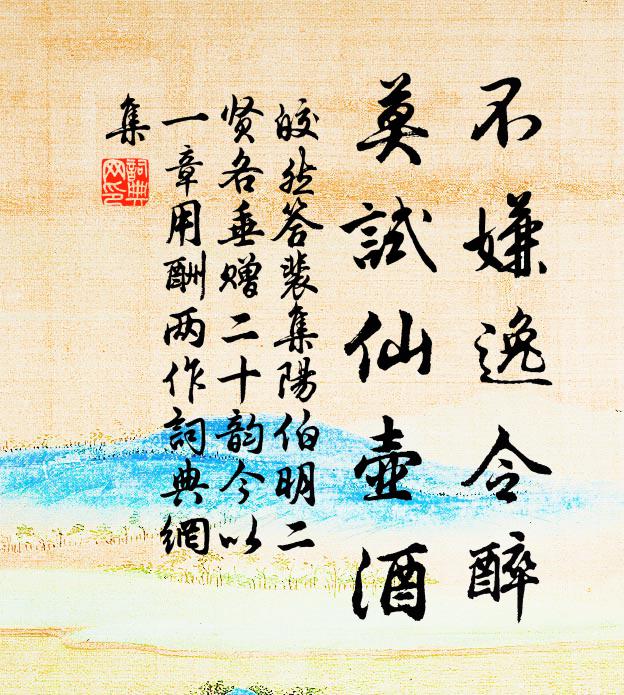 不嫌逸令醉
莫試仙壺酒
皎然答裴集陽伯明二
贤各垂赠二十韵今以
一章用酬两作詞典網
集
詞典網印